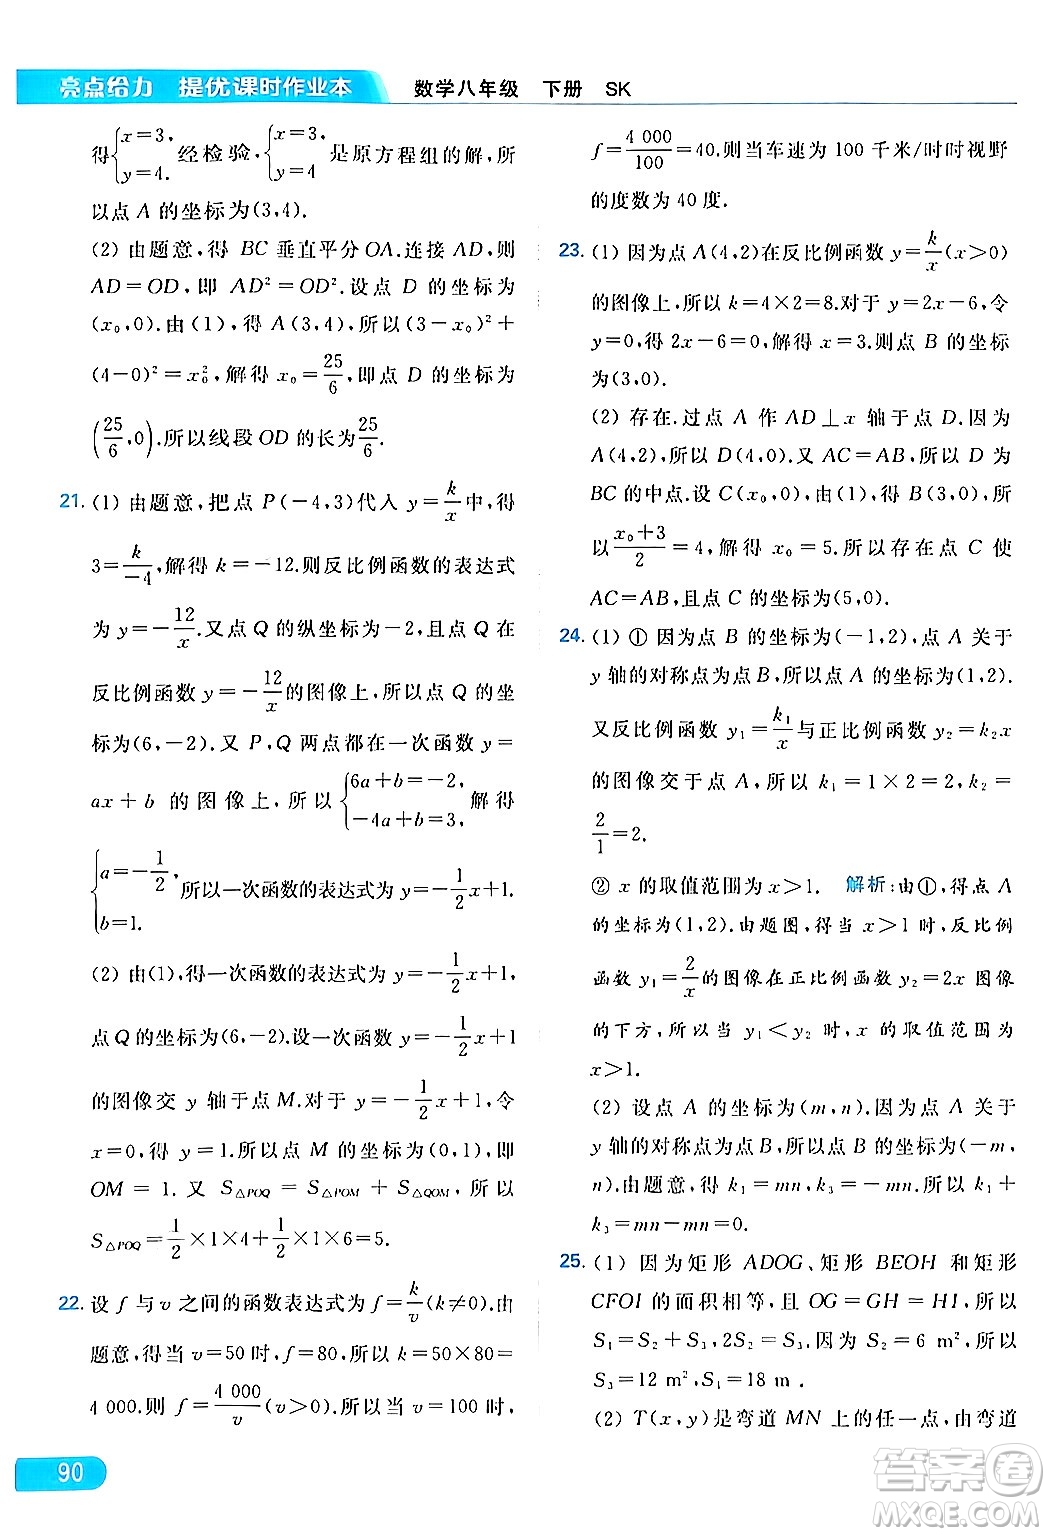 亮点给力 提优课时作业本 数学八年级 下册 SK
得{x=3, y=4. 经检验,{x=3, y=4 是原方程组的解,所
以点 A 的坐标为(3,4).
(2) 由题意,得 BC 垂直平分 OA.连接 AD,则
AD=OD,即 AD²=OD².设点 D 的坐标为
(x₀,0).由(1),得 A(3,4),所以(3-x₀)²+
(4-0)²=x₀²,解得 x₀=25/6,即点 D 的坐标为
(25/6,0).所以线段 OD 的长为25/6.
21. (1) 由题意,把点 P(-4,3)代入 y=k/x中,得
3=k/-4,解得 k=-12.则反比例函数的表达式
为 y=-12/x.又点 Q 的纵坐标为-2,且点 Q 在
反比例函数 y=-12/x的图像上,所以点 Q 的坐
标为(6,-2).又 P,Q 两点都在一次函数 y=
ax+b 的图像上,所以{6a+b=-2, -4a+b=3, 解得
{a=-1/2, b=1. 所以一次函数的表达式为 y=-1/2x+1.
(2) 由(1),得一次函数的表达式为 y=-1/2x+1,
点 Q 的坐标为(6,-2).设一次函数 y=-1/2x+1
的图像交 y 轴于点 M.对于 y=-1/2x+1,令
x=0,得 y=1.所以点 M 的坐标为(0,1),即
OM=1.又 S△POQ=S△POM+S△QOM,所以
S△POQ=1/2×1×4+1/2×1×6=5.
22. 设 f 与 v 之间的函数表达式为 f=k/v(k≠0).由
题意,得当 v=50 时,f=80,所以 k=50×80=
4 000.则 f=4 000/v(v>0).当 v=100 时,
f=4 000/100=40.则当车速为 100 千米/时时视野
的度数为 40 度.
23. (1) 因为点 A(4,2)在反比例函数 y=k/x(x>0)
的图像上,所以 k=4×2=8.对于 y=2x-6,令
y=0,得 2x-6=0,解得 x=3.则点 B 的坐标
为(3,0).
(2) 存在.过点 A 作 AD⊥x 轴于点 D.因为
A(4,2),所以 D(4,0).又 AC=AB,所以 D 为
BC 的中点.设 C(x₀,0),由(1),得 B(3,0),所
以x₀+3/2=4,解得 x₀=5.所以存在点 C 使
AC=AB,且点 C 的坐标为(5,0).
24. (1) ① 因为点 B 的坐标为(-1,2),点 A 关于
y 轴的对称点为点 B,所以点 A 的坐标为(1,2).
又反比例函数 y₁=k₁/x与正比例函数 y₂=k₂x
的图像交于点 A,所以 k₁=1×2=2,k₂=
2/1=2.
② x 的取值范围为 x>1. 解析:由①,得点 A
的坐标为(1,2).由题图,得当 x>1 时,反比例
函数 y₁=2/x的图像在正比例函数 y₂=2x 图像
的下方,所以当 y₁<y₂ 时,x 的取值范围为
x>1.
(2) 设点 A 的坐标为(m,n).因为点 A 关于
y 轴的对称点为点 B,所以点 B 的坐标为(-m,
n).由题意,得 k₁=mn,k₃=-mn.所以 k₁+
k₃=mn-mn=0.
25. (1) 因为矩形 ADOG、矩形 BEOH 和矩形
CFOI 的面积相等,且 OG=GH=HI,所以
S₁=S₂+S₃,2S₂=S₃.又 S₂=6 m²,所以
S₃=12 m²,S₁=18 m.
(2) T(x,y)是弯道 MN 上的任一点,由弯道
90
答案圈
MXQE.COM